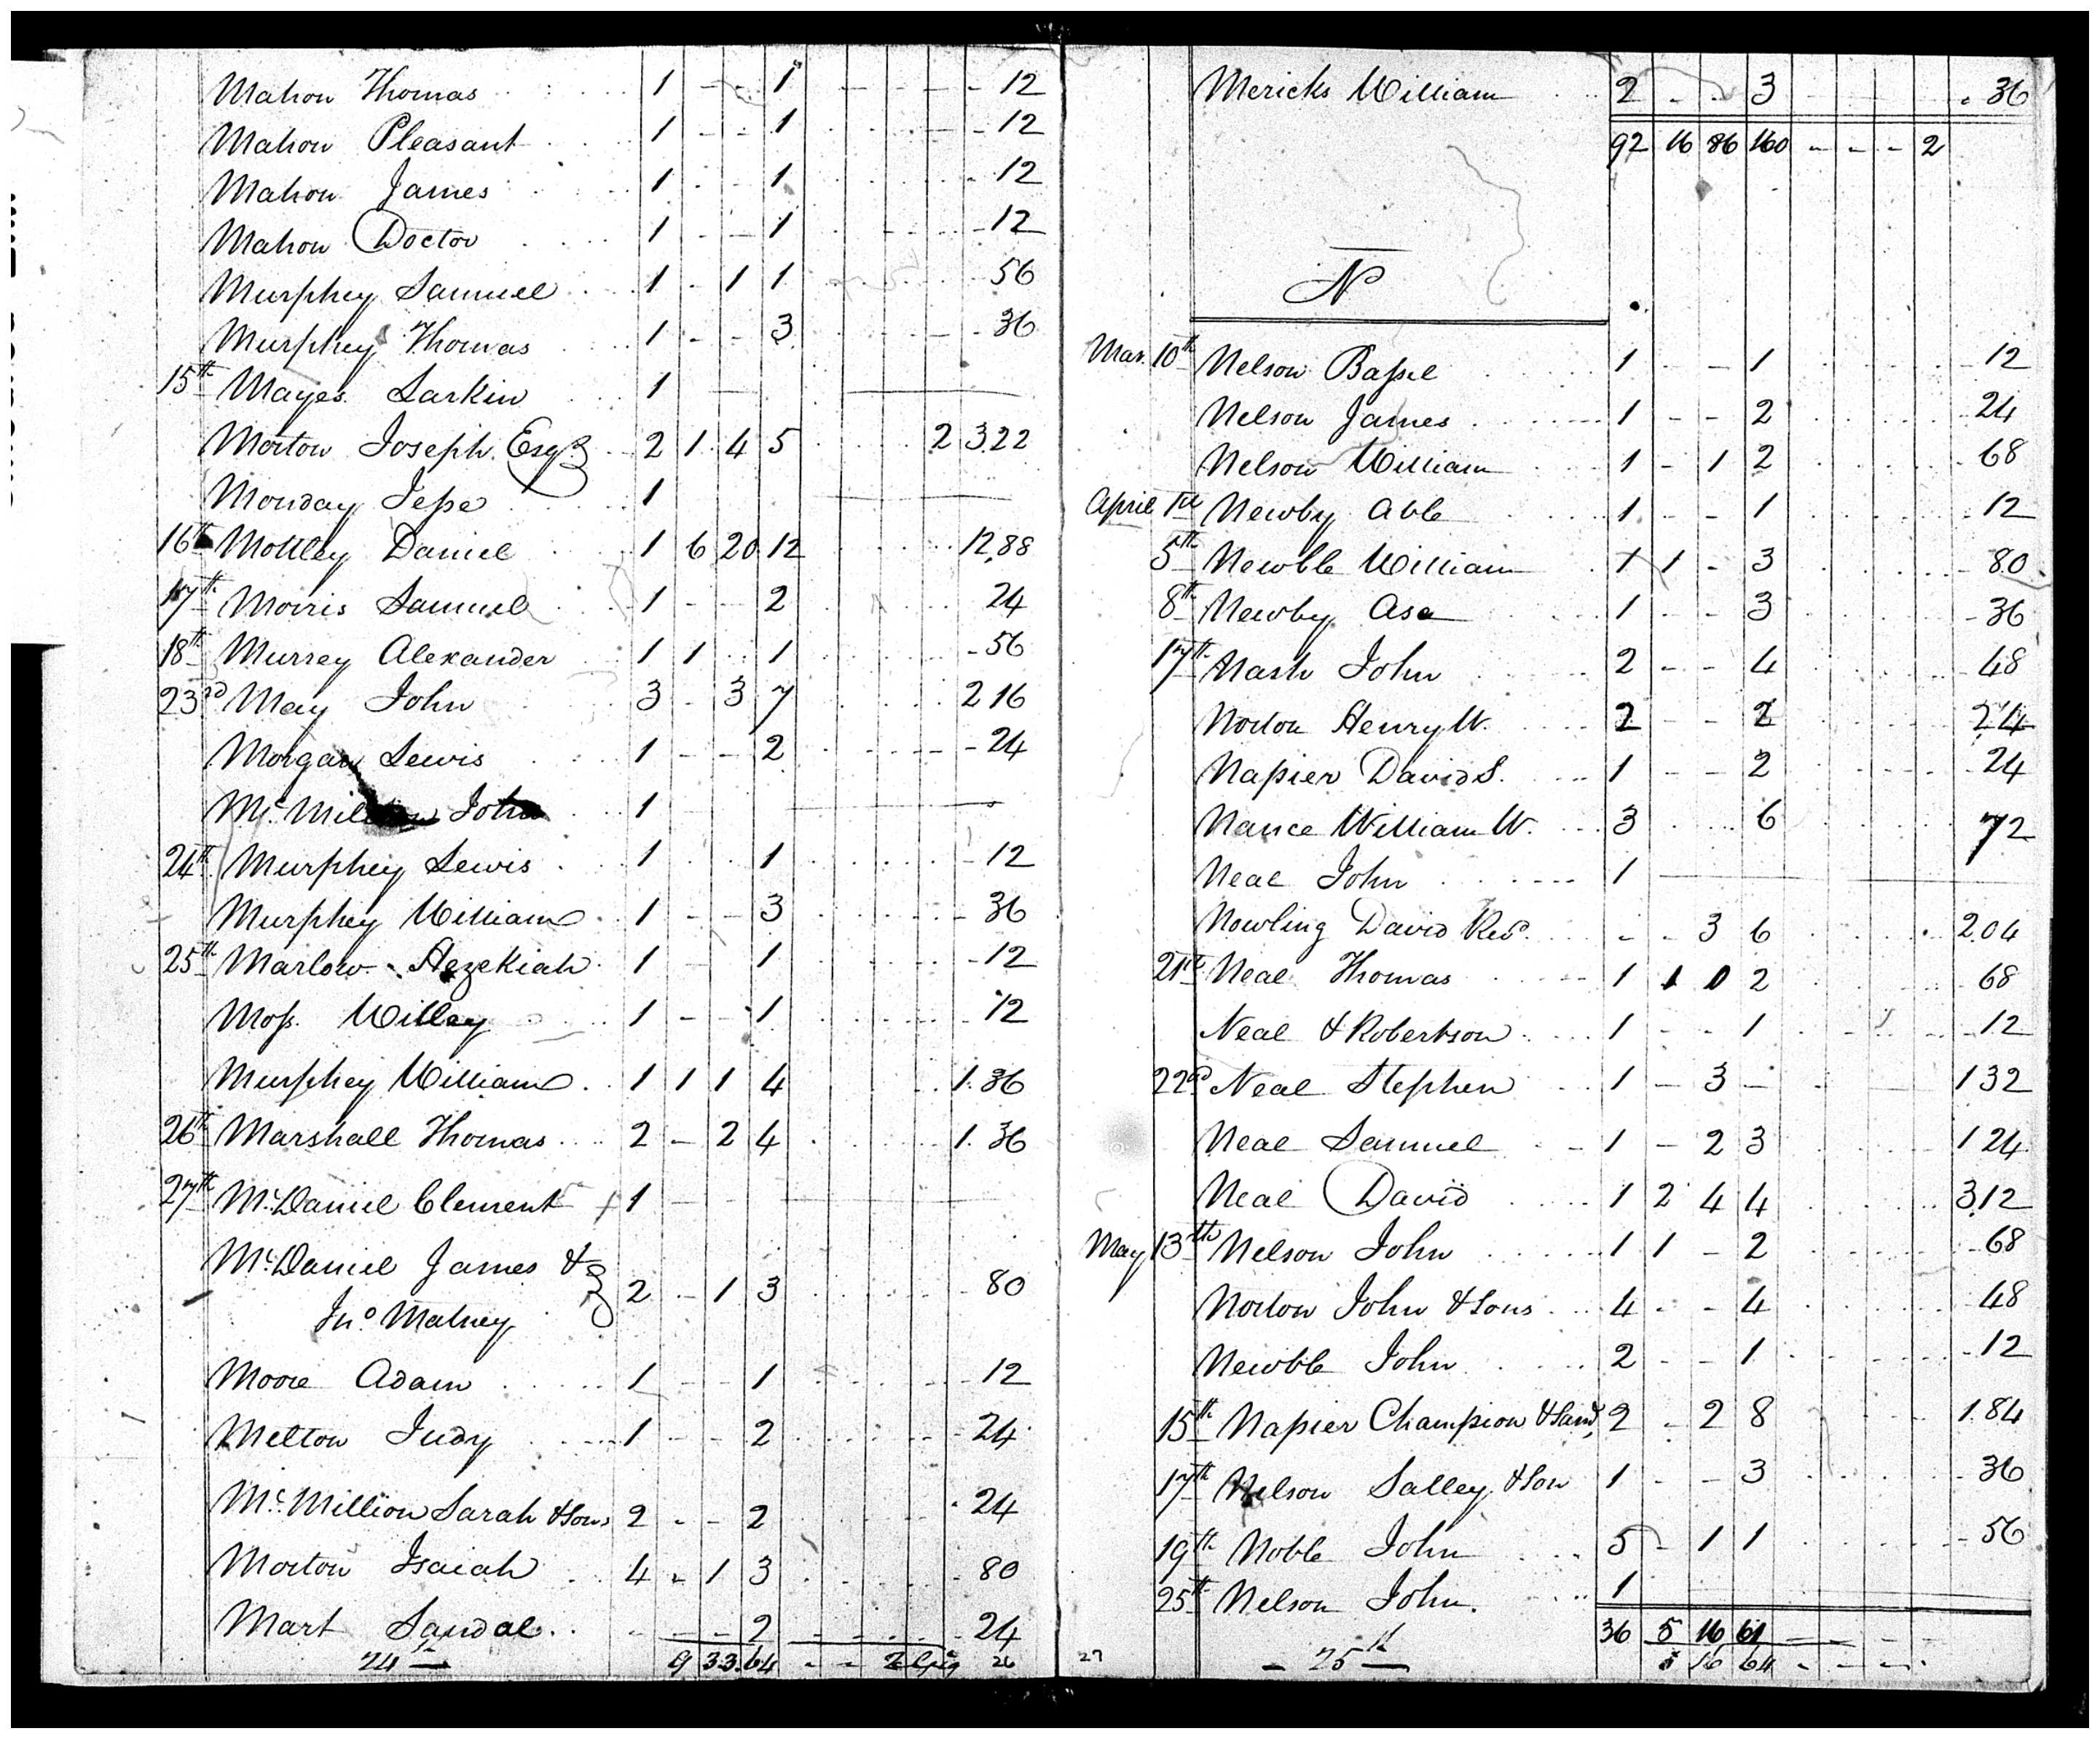 Mahon Thomas 1 - - 1 - - - - 12
Mahon Pleasant 1 - - 1 - 12
Mahon James 1 - - 1 - 12
Mahon Doctor 1 - - 1 - 12
Murphey Samuel 1 - 1 1 56
Murphey Thomas 1 - - 3 - 36
15th Mayes Larkin 1
Morton Joseph Esqr 2 1 4 5 2 3.22
Monday Jesse 1
16th Mottley Daniel 1 6 20 12 12.88
17th Morris Samuel 1 - - 2 24
18th Murrey Alexander 1 1 - 1 - 56
23rd May John 3 - 3 7 2 16
Morgan Lewis 1 - - 2 - 24
Mc. John 1
24th Murphey Lewis 1 - - 1 - 12
Murphey William 1 - - 3 - 36
25th Marlow Hezekiah 1 - 1 - 12
Moss Willey 1 - - 1 - 12
Murphey William 1 1 1 4 1.36
26th Marshall Thomas 2 - 2 4 1.36
27th McDaniel Clement 1
McDaniel James &
Jno Matney 2 - 1 3 80
Moore Adam 1 - - 1 - 12
Melton Judy 1 - - 2 - 24
McMillion Sarah & Sons 2 - - 2 24
Morton Isaiah 4 - 1 3 - 80
Mart Sandal - - - 2 - 24
24th 9 33 64 - - 2 26
Mericks William 2 - - 3 - 36
92 16 86 160 - - - 2
N
Mar. 10th Nelson Bassel 1 - - 1 12
Nelson James 1 - - 2 24
Nelson William 1 - 1 2 68
April 1st Newby Able 1 - - 1 12
5th Newble William 1 1 - 3 80
8th Newby Asa 1 - - 3 - 36
17th Nash John 2 - - 4 48
Norton Henry W. 2 - - 2 24
Napier David S. 1 - - 2 24
Nance William W. 3 6 72
Neal John 1
Nowling David Revd. - - 3 6 2.04
21st Neal Thomas 1 1 0 2 68
Neal & Robertson 1 - - 1 12
22nd Neal Stephen 1 - 3 - 132
Neal Samuel 1 - 2 3 1 24
Neal David 1 2 4 4 3.12
May 13th Nelson John 1 1 - 2 68
Norton John & Sons 4 - - 4 48
Newble John 2 - - 1 12
15th Napier Champion & 2 - 2 8 1.84
17th Nelson Salley & Son 1 - - 3 36
19th Noble John 5 - 1 1 - 56
25th Nelson John. 1
36 5 16 61 - - -
27 - 25th 5 16 64 - - -